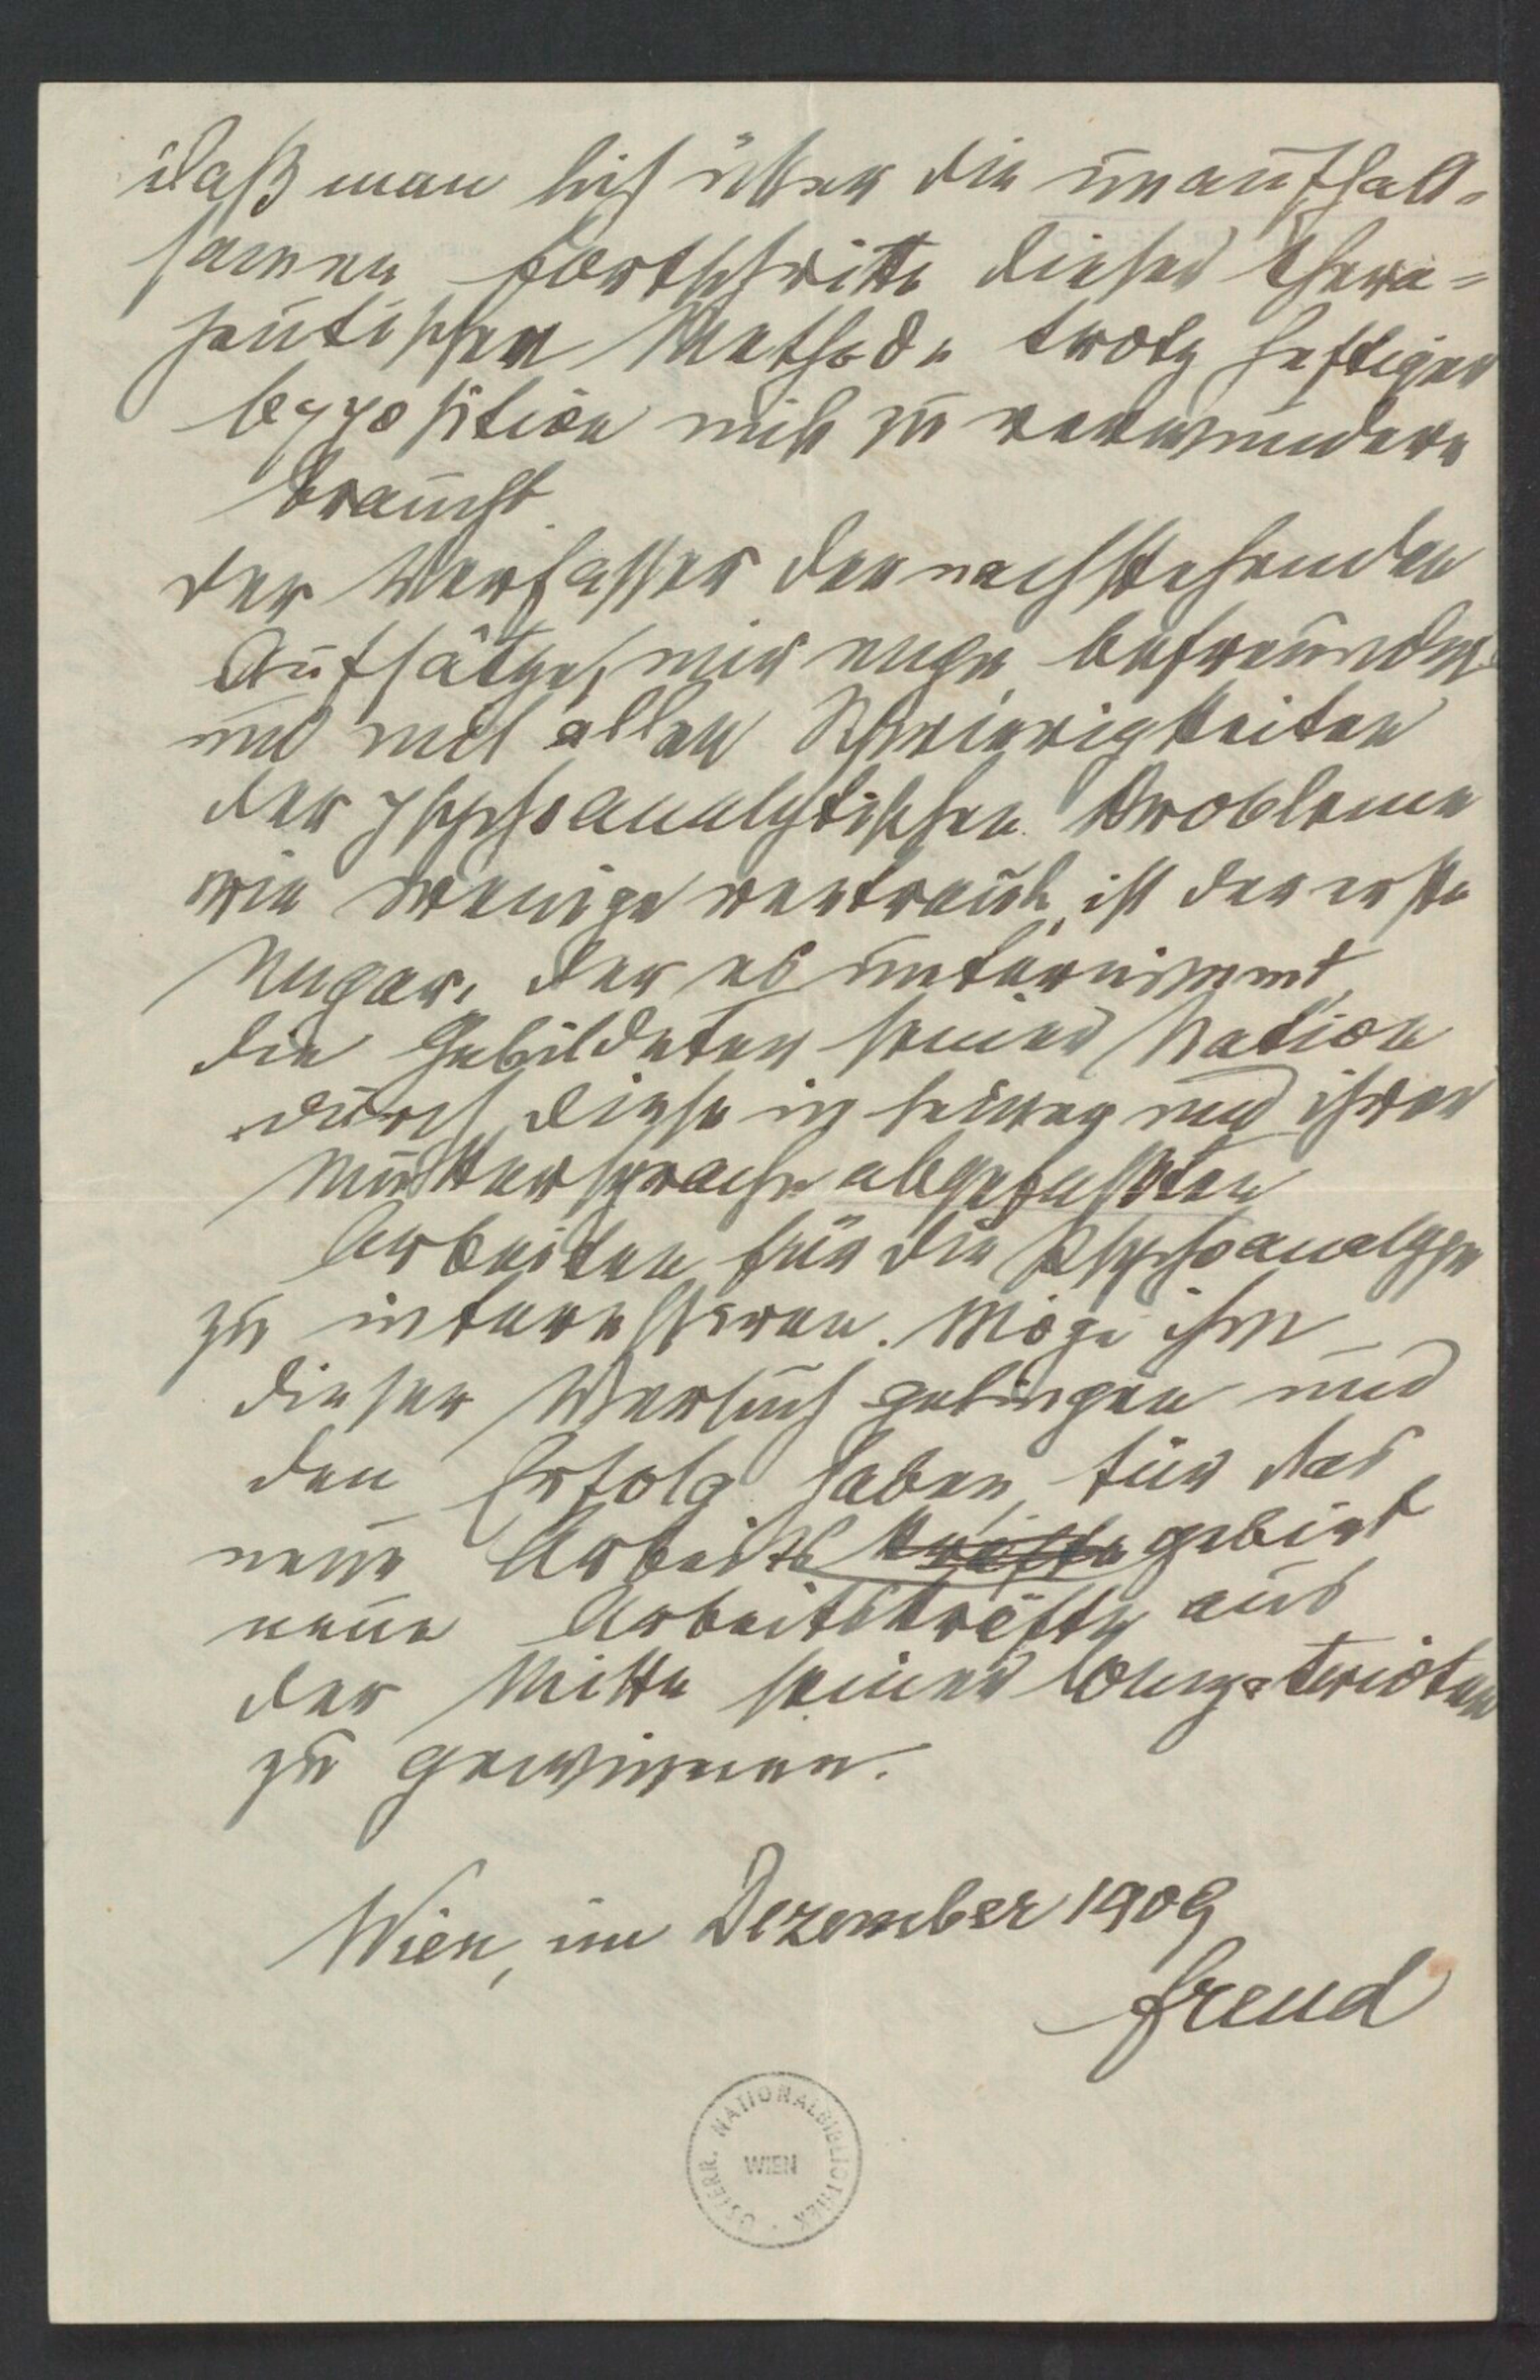 daß man sich über die unaufhalt-
samen Fortschritte dieser thera-
peutischen Methode trotz heftiger
Opposition nicht zu verwundern
braucht.
Der Verfasser der nachstehenden
Aufsätze, mir enge befreundet
und mit allen Schwierigkeiten
der psychoanalytischen Probleme
wie wenige vertraut, ist der erste
Ungar, der es unternimmt,
die Gebildeten seiner Nation
durch diese in seiner und ihrer
Muttersprache abgefaßten
Arbeiten für die Psychoanalyse
zu interessieren. Möge ihm
dieser Versuch gelingen und
den Erfolg haben, für das
neue Arbeits kräfte gebiet
neue Arbeitskräfte aus
der Mitte seiner Compatrioten
zu gewinnen.
Wien, im Dezember 1909
Freud
ÖSTERR. NATIONALBIBLIOTHEK
WIEN